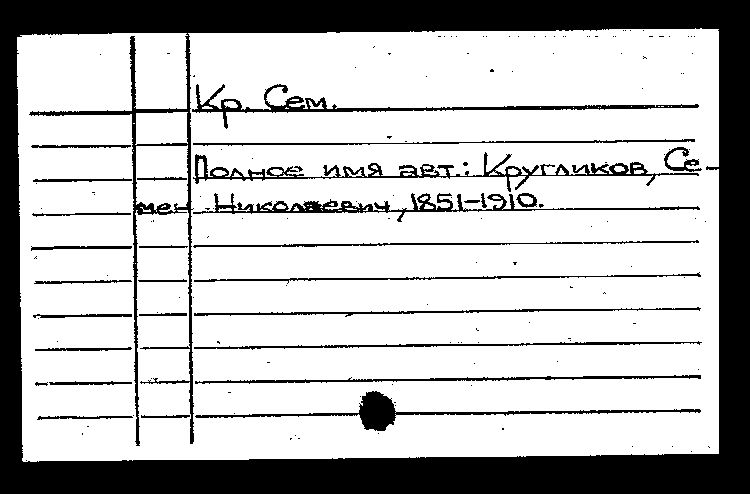 Кр. Сем.
Полное имя авт.: Кругликов, Се-
мен Николаевич, 1851-1910.